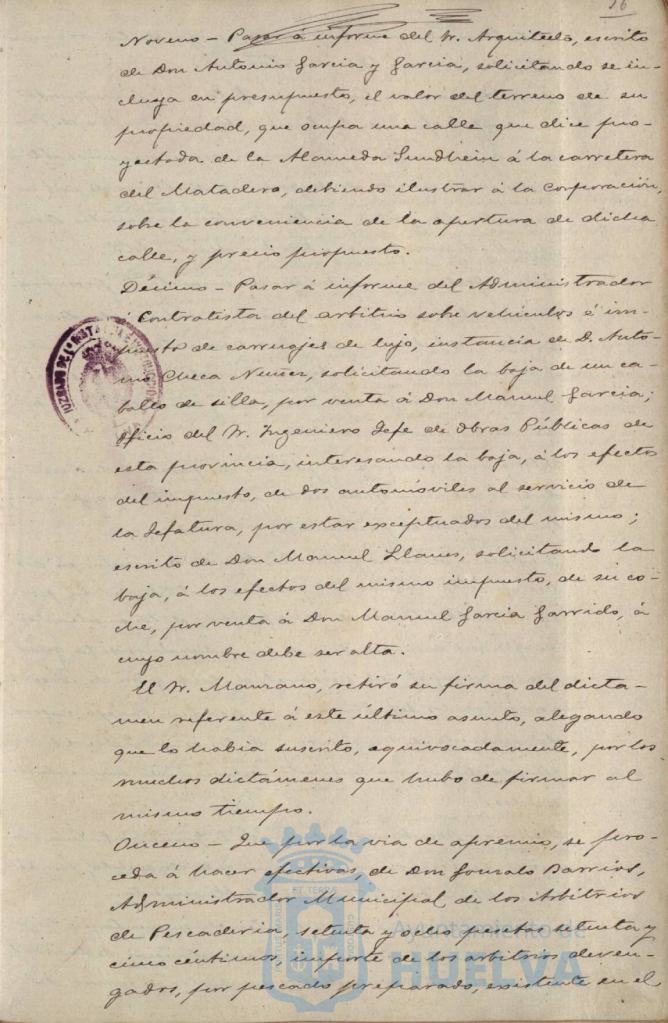 16
Noveno - Pasar á informe del Sr. Arquitecto, escrito
de Don Antonio García y García, solicitando se in-
cluya en presupuesto, el valor del terreno de su
propiedad, que ocupa una calle que dice pro-
yectada de la Alameda Sundheim á la carretera
del Matadero, debiendo ilustrar á la Corporación,
sobre la conveniencia de la apertura de dicha
calle, y precio propuesto.
Décimo - Pasar á informe del Administrador
Contratista del arbitrio sobre vehículos é im-
puesto de carruajes de lujo, instancia de D. Anto-
nio Checa Nuñez, solicitando la baja de un ca-
ballo de silla, por venta á Don Manuel García;
oficio del Sr. Ingeniero Jefe de Obras Públicas de
esta provincia, interesando la baja, á los efectos
del impuesto, de dos automóviles al servicio de
la Jefatura, por estar exceptuados del mismo;
escrito de Don Manuel Llanes, solicitando la
baja, á los efectos del mismo impuesto, de su co-
che, por venta á Don Manuel García Garrido, á
cuyo nombre debe ser alta.
El Sr. Manzano, retiró su firma del dicta-
men referente á este último asunto, alegando
que lo había suscrito, equivocadamente, por los
muchos dictámenes que hubo de firmar al
mismo tiempo.
Onceno - Que por la via de apremio, se pro-
ceda á hacer efectivas, de Don Gonzalo Barrios,
Administrador Municipal de los Arbitrios
de Pescadería, setenta y ocho pesetas setenta y
cinco céntimos, importe de los arbitrios deven-
gados, por pescado preparado, existente en el
JUZGADO DE 1ª INSTANCIA
Ayuntamiento de
HUELVA